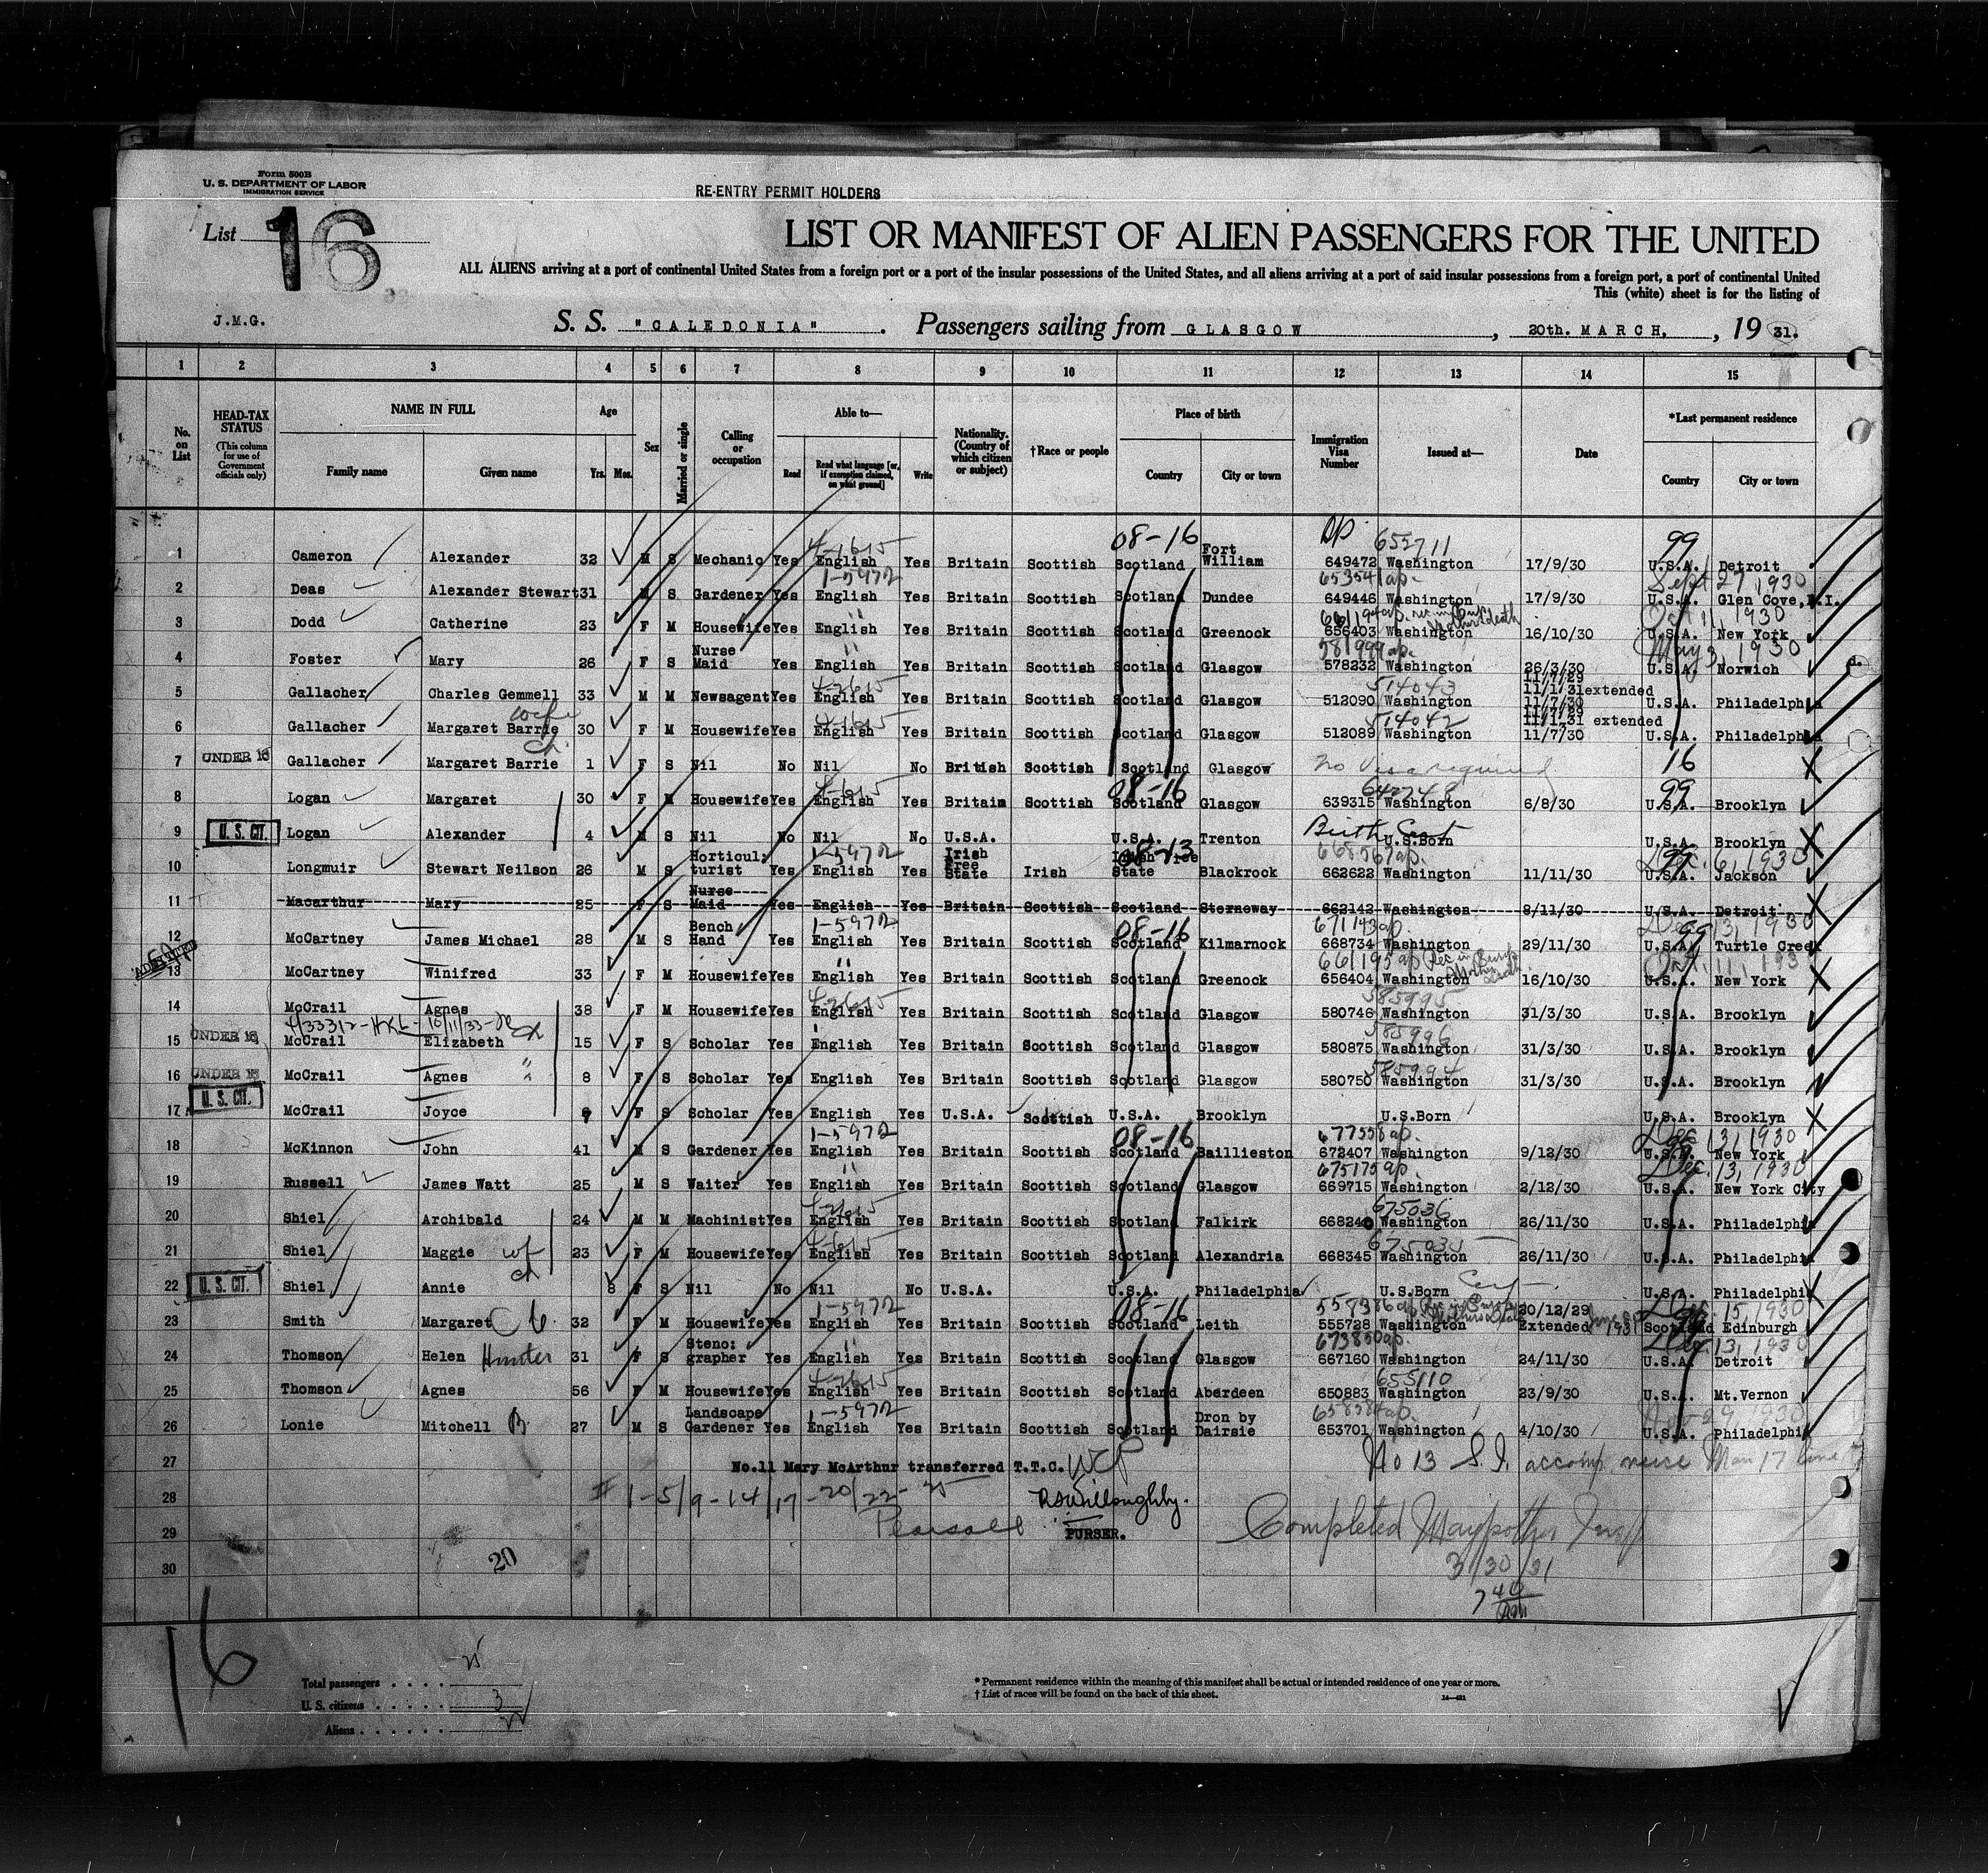 Form 500B
U. S. DEPARTMENT OF LABOR
IMMIGRATION SERVICE
RE-ENTRY PERMIT HOLDERS
List 16
LIST OR MANIFEST OF ALIEN PASSENGERS FOR THE UNITED
ALL ALIENS arriving at a port of continental United States from a foreign port or a port of the insular possessions of the United States, and all aliens arriving at a port of said insular possessions from a foreign port, a port of continental United
This (white) sheet is for the listing of
J.M.G.
S. S. "CALEDONIA" . Passengers sailing from GLASGOW , 20th. MARCH, , 19 31.
1 2 3 4 5 6 7 8 9 10 11 12 13 14 15
No. on List
HEAD-TAX STATUS (This column for use of Government officials only)
NAME IN FULL
Family name Given name
Age Yrs. Mos.
Sex
Married or single
Calling or occupation
Able to—
Read Read what language [or, if exemption claimed, on what ground] Write
Nationality. (Country of which citizen or subject)
†Race or people
Place of birth
Country City or town
Immigration Visa Number
Issued at—
Date
*Last permanent residence
Country City or town
08-16 652711 99
1 Cameron Alexander 32 M S Mechanic Yes English Yes Britain Scottish Scotland Fort William 649472 Washington 17/9/30 U.S.A. Detroit
1-5972 653541 ap. Sept 27, 1930
2 Deas Alexander Stewart 31 M S Gardener Yes English Yes Britain Scottish Scotland Dundee 649446 Washington 17/9/30 U.S.A. Glen Cove,
Oct 11, 1930
3 Dodd Catherine 23 F M Housewife Yes English Yes Britain Scottish Scotland Greenock 656403 Washington 16/10/30 U.S.A. New York
581999 ap. May 3, 1930
4 Foster Mary 26 F S Nurse Maid Yes English Yes Britain Scottish Scotland Glasgow 578232 Washington 26/3/30 U.S.A. Norwich
514043 11/7/29 11/1/31 extended
5 Gallacher Charles Gemmell 33 M M Newsagent Yes English Yes Britain Scottish Scotland Glasgow 512090 Washington 11/7/30 U.S.A. Philadelphia
wife 514042 11/7/29 11/1/31 extended
6 Gallacher Margaret Barrie 30 F M Housewife Yes English Yes Britain Scottish Scotland Glasgow 512089 Washington 11/7/30 U.S.A. Philadelphia
ch.
7 UNDER 16 Gallacher Margaret Barrie 1 F S Nil No Nil No British Scottish Scotland Glasgow No Visa required 16
08-16 99
8 Logan Margaret 30 F M Housewife Yes English Yes Britain Scottish Scotland Glasgow 639315 Washington 6/8/30 U.S.A. Brooklyn
9 U. S. CIT. Logan Alexander 4 M S Nil No Nil No U.S.A. U.S.A. Trenton Birth Cert U.S.Born U.S.A. Brooklyn
1-5972 08-13 668567 ap. Dec. 6, 1930
10 Longmuir Stewart Neilson 26 M S Horticul: turist Yes English Yes Irish Free State Irish Irish Free State Blackrock 662622 Washington 11/11/30 U.S.A. Jackson
11 Macarthur Mary 25 F S Nurse Maid Yes English Yes Britain Scottish Scotland Storneway 662142 Washington 8/11/30 U.S.A. Detroit
1-5972 08-16 671143 ap. Dec 13, 1930
12 McCartney James Michael 28 M S Bench Hand Yes English Yes Britain Scottish Scotland Kilmarnock 668734 Washington 29/11/30 U.S.A. Turtle Creek
ADMITTED 661195 ap Oct. 11, 193
13 McCartney Winifred 33 F M Housewife Yes English Yes Britain Scottish Scotland Greenock 656404 Washington 16/10/30 U.S.A. New York
585995
14 McCrail Agnes 38 F M Housewife Yes English Yes Britain Scottish Scotland Glasgow 580746 Washington 31/3/30 U.S.A. Brooklyn
585996
15 UNDER 16 McCrail Elizabeth 15 F S Scholar Yes English Yes Britain Scottish Scotland Glasgow 580875 Washington 31/3/30 U.S.A. Brooklyn
585994
16 UNDER 16 McCrail Agnes 8 F S Scholar Yes English Yes Britain Scottish Scotland Glasgow 580750 Washington 31/3/30 U.S.A. Brooklyn
17 U. S. CIT. McCrail Joyce F S Scholar Yes English Yes U.S.A. Scottish U.S.A. Brooklyn U.S.Born U.S.A. Brooklyn
1-5972 08-16 677558 ap. Dec 13, 1930
18 McKinnon John 41 M S Gardener Yes English Yes Britain Scottish Scotland Baillieston 672407 Washington 9/12/30 U.S.A. New York
675175 ap. Dec. 13, 1930
19 Russell James Watt 25 M S Waiter Yes English Yes Britain Scottish Scotland Glasgow 669715 Washington 2/12/30 U.S.A. New York City
675036
20 Shiel Archibald 24 M M Machinist Yes English Yes Britain Scottish Scotland Falkirk 668240 Washington 26/11/30 U.S.A. Philadelphia
675035
21 Shiel Maggie wf 23 F M Housewife Yes English Yes Britain Scottish Scotland Alexandria 668345 Washington 26/11/30 U.S.A. Philadelphia
22 U. S. CIT. Shiel Annie ch 8 F S Nil No Nil No U.S.A. U.S.A. Philadelphia U.S.Born Cert U.S.A. Philadelphia
1-5972 08-16 20/12/29 Dec. 15, 1930
23 Smith Margaret 32 F M Housewife Yes English Yes Britain Scottish Scotland Leith 555728 Washington Extended Scotland Edinburgh
673850 ap. Dec. 13, 1930
24 Thomson Helen Hunter 31 F S Steno: grapher Yes English Yes Britain Scottish Scotland Glasgow 667160 Washington 24/11/30 U.S.A. Detroit
655110
25 Thomson Agnes 56 F M Housewife Yes English Yes Britain Scottish Scotland Aberdeen 650883 Washington 23/9/30 U.S.A. Mt.Vernon
1-5972 658384 ap.
26 Lonie Mitchell B. 27 M S Landscape Gardener Yes English Yes Britain Scottish Scotland Dron by Dairsie 653701 Washington 4/10/30 U.S.A. Philadelphia
27 No.11 Mary McArthur transferred T.T.C. No 13 S.I. accomp. niece Man 17 line
28 # 1-5/9-14/17-20/22-25 RSWilloughby.
29 Pearsall PURSER. Completed
30 20 3/30/31
7 40 am
16
Total passengers . . . . 25
U. S. citizens . . . . . 3
Aliens . . . . . . 22
* Permanent residence within the meaning of this manifest shall be actual or intended residence of one year or more.
† List of races will be found on the back of this sheet.